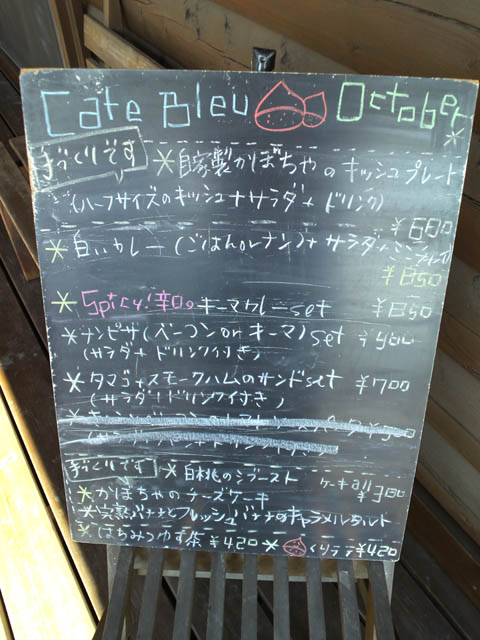 Cafe Bleu October
手づくりです * 自家製かぼちゃのキッシュプレート
(ハーフサイズのキッシュ+サラダ+ドリンク)
¥600
* 白いカレー(ごはんorナン)+サラダ+
¥850
* Spicy!辛口。キーマカレーset ¥850
* ナンピザ(ベーコンorキーマ)set
(サラダ+ドリンク付き)
* タマゴ+スモークハムのサンドset ¥700
(サラダ+ドリンク付き)
手づくりです * 白桃のシブースト ケーキall ¥300
* かぼちゃのチーズケーキ
* 完熟バナナとフレッシュバナナのキャラメルタルト
* はちみつゆず茶 ¥420 * くりラテ ¥420